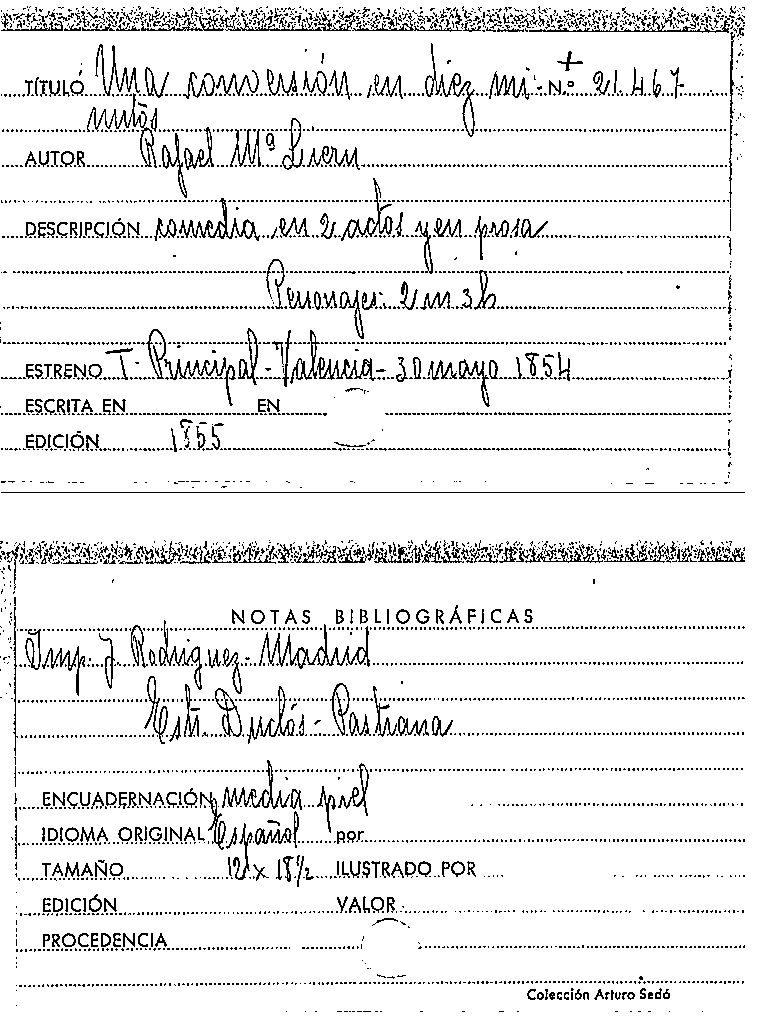 TÍTULO Una conversión en diez mi- N.º 21.467
+
nutos
AUTOR Rafael Mª Liern
DESCRIPCIÓN comedia en 2 actos y en prosa
Personajes: 2 m 3 h
ESTRENO T. Principal - Valencia - 30 mayo 1854
ESCRITA EN EN
EDICIÓN 1855
NOTAS BIBLIOGRÁFICAS
Imp. J. Rodriguez - Madrid
Estr. Duclós - Pastrana
ENCUADERNACIÓN media piel
IDIOMA ORIGINAL Español por
TAMAÑO 12 x 18½ ILUSTRADO POR
EDICIÓN VALOR
PROCEDENCIA
Colección Arturo Sedó